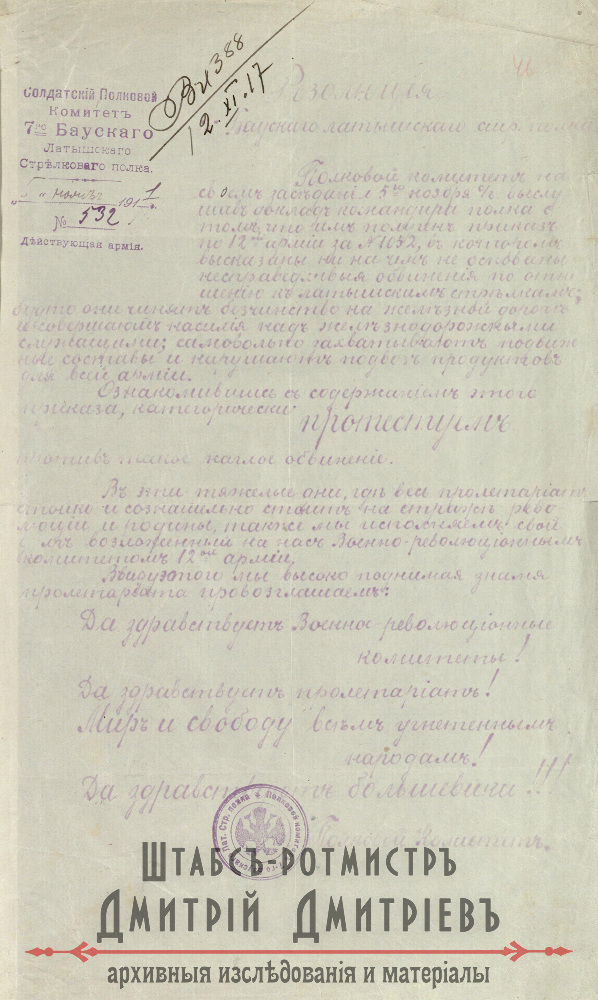 Солдатскій Полковой
Комитетъ
7го Баускаго
Латышскаго
Стрѣлковаго полка.
" " нояб 1917
№ 532
Дѣйствующая армія.
Вх 388
12.XI.17
46
Резолюція
Баускаго латышскаго стр. полка
Полковой комитетъ на
своемъ засѣданіи 5го ноября с/г выслу
шавъ докладъ командира полка о
томъ, что имъ полученъ приказъ
по 12ой арміи за № 1032, въ которомъ
высказаны ни на чемъ не основаны
несправедливыя обвиненія по отно
шенію къ латышскимъ стрѣлкамъ;
будто они чинятъ безчинство на желѣзной дорогѣ
и совершаютъ насилія надъ желѣзнодорожными
служащими; самовольно захватываютъ подвиж
ные составы и нарушаютъ подвозъ продуктовъ
для всей арміи.
Ознакомившись съ содержаніемъ этого
приказа, категорически
протестуемъ
противъ такое наглое обвиненіе.
Въ эти тяжелые дни, гдѣ весь пролетаріатъ
стойко и сознательно стоитъ на стражѣ рево
люціи и родины, также мы исполняемъ свой
возложенный на насъ Военно-революціоннымъ
комитетомъ 12ой арміи.
Ввиду этого мы высоко поднимая знамя
пролетаріата провозглашаемъ:
Да здравствуетъ Военно-революціонные
комитеты!
Да здравствуетъ пролетаріатъ!
Миръ и свободу всѣмъ угнетеннымъ
народамъ!
Да здравствуетъ большевики!!!
Полковой Комитетъ.
Штабсъ-ротмистръ
Дмитрій Дмитріевъ
архивныя изслѣдованія и матеріалы